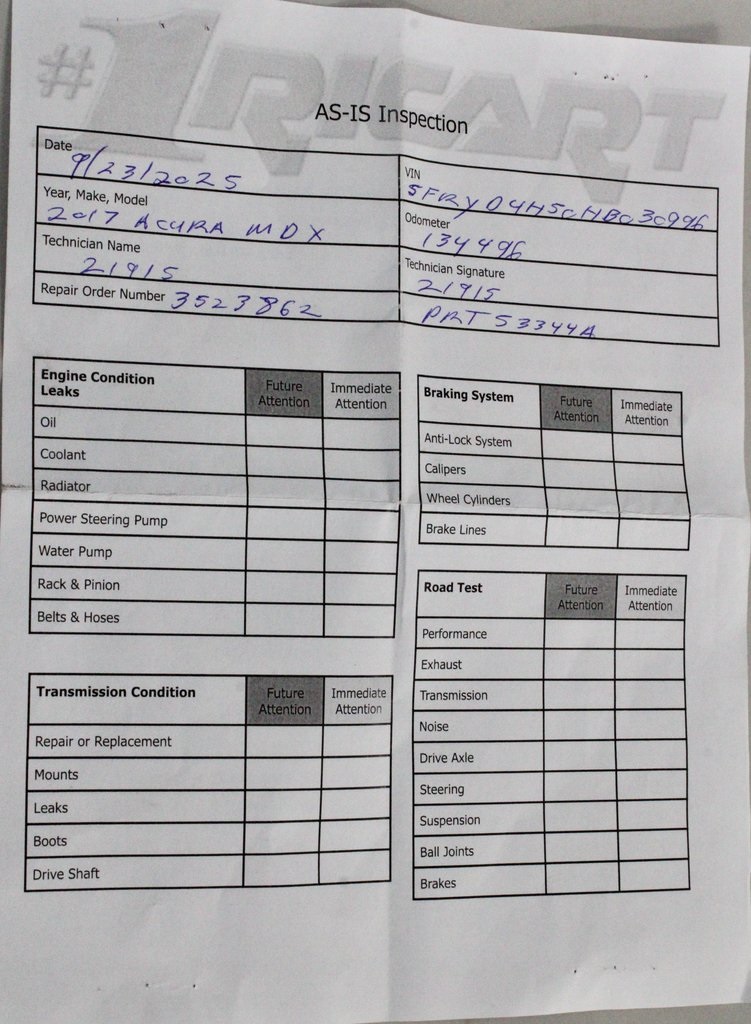 #1RICART
AS-IS Inspection
Date 9/23/2025
VIN 5FRYD4H50HB030996
Year, Make, Model 2017 ACURA MDX
Odometer 134496
Technician Name 21915
Technician Signature 21915
Repair Order Number 3523862
PRT53344A
Engine Condition
Leaks
Future Attention
Immediate Attention
Oil
Coolant
Radiator
Power Steering Pump
Water Pump
Rack & Pinion
Belts & Hoses
Transmission Condition
Future Attention
Immediate Attention
Repair or Replacement
Mounts
Leaks
Boots
Drive Shaft
Braking System
Future Attention
Immediate Attention
Anti-Lock System
Calipers
Wheel Cylinders
Brake Lines
Road Test
Future Attention
Immediate Attention
Performance
Exhaust
Transmission
Noise
Drive Axle
Steering
Suspension
Ball Joints
Brakes